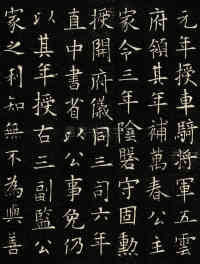 元年授車騎將軍五雲
府領其年補萬春公主
家令三年陰罟守固勳
授開府儀同三司六年
直中書省以公事免仍
以其年授右三副監公
家之利知無不為與善